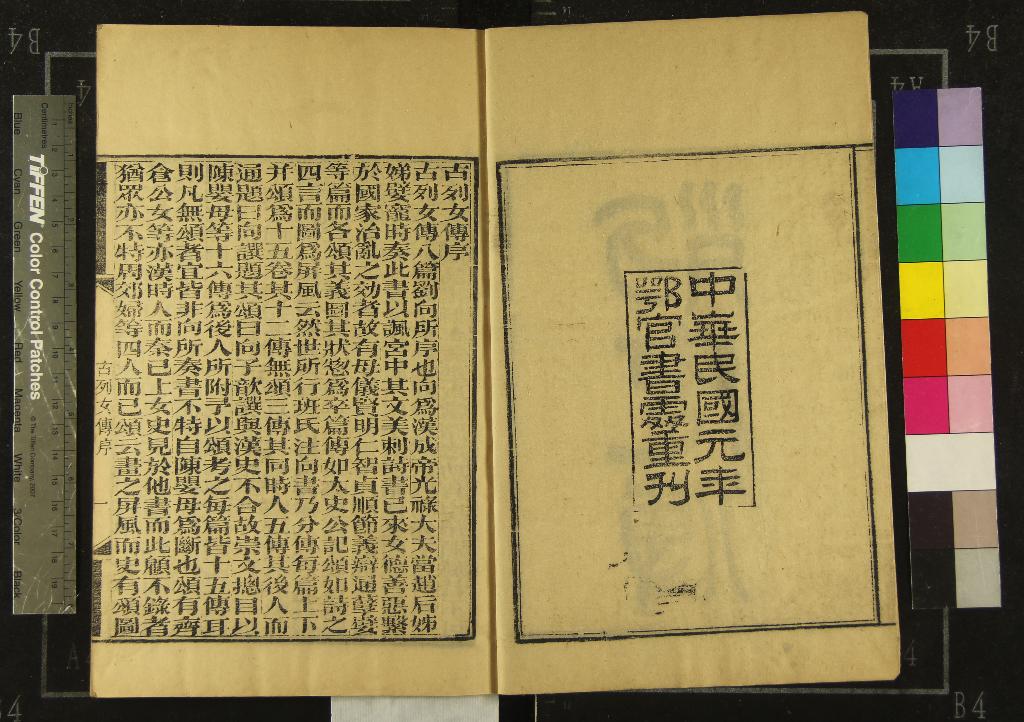 中華民國元年
鄂官書處重刊
古列女傳序
古列女傳八篇劉向所序也向爲漢成帝光祿大夫當趙后姊
娣嬖寵時奏此書以諷宮中其文美刺詩書已來女德善惡繫
於國家治亂之効者故有母儀賢明仁智貞順節義辯通孽嬖
等篇而各頌其義圖其狀惣爲卒篇傳如太史公記頌如詩之
四言而圖爲屏風云然世所行班氏注向書乃分傳每篇上下
并頌爲十五卷其十二傳無頌三傳其同時人五傳其後人而
通題曰向譔題其頌曰向子歆譔與漢史不合故崇文摠目以
陳嬰母等十六傳爲後人所附予以頌考之每篇皆十五傳耳
則凡無頌者宜皆非向所奏書不特自陳嬰母爲斷也頌有齊
倉公女等亦漢時人而秦已上女史見於他書而此顧不錄者
猶眾亦不特周郊婦等四人而已頌云畫之屏風而史有頌圖
古列女傳序
一
TIFFEN Color Control Patches
© The Tiffen Company, 2007
Centimetres
Inches
Blue
Cyan
Green
Yellow
Red
Magenta
White
3/Color
Black
B4
B4
A4
B4